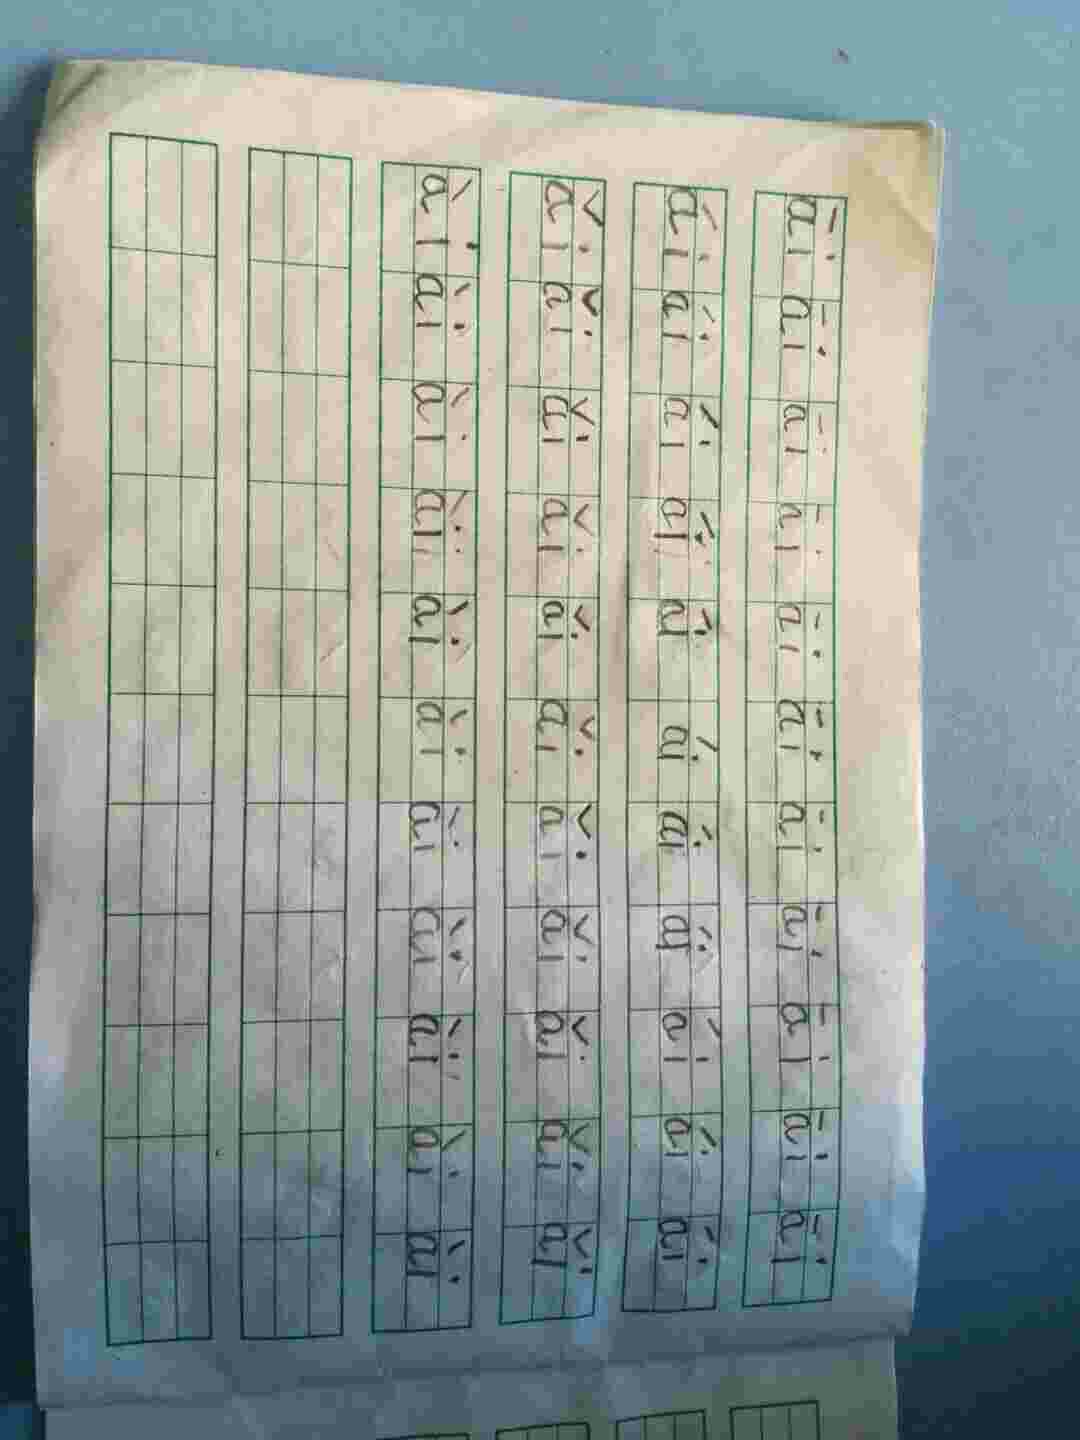 āi āi āi āi āi āi āi āi āi āi āi
ái ái ái ái ái ái ái ái ái ái ái
ǎi ǎi ǎi ǎi ǎi ǎi ǎi ǎi ǎi ǎi ǎi
ài ài ài ài ài ài ài ài ài ài ài